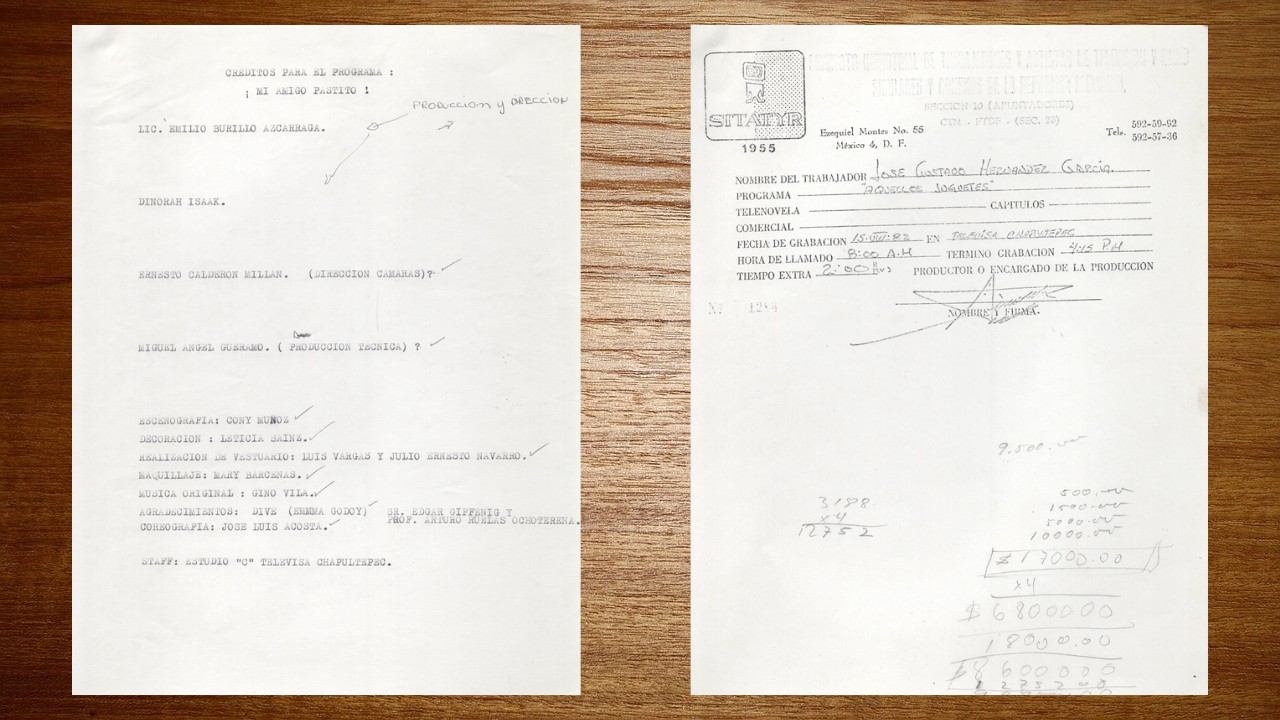 CREDITOS PARA EL PROGRAMA :
¡ MI AMIGO PASTITO !
PRODUCCION y DIRECCION
LIC. EMILIO BURILLO AZCARRAGA.
DINORAH ISAAK.
ERNESTO CALDERON MILLAN. (DIRECCION CAMARAS)?
MIGUEL ANGEL GUERAMO. ( PRODUCCION TECNICA) ?
ESCENOGRAFIA: CONY MUÑOZ
DECORACION : LETICIA SAINZ.
REALIZACION DE VESTUARIO: LUIS VARGAS Y JULIO ERNESTO NAVARRO.
MAQUILLAJE: MARY BARCENAS.
MUSICA ORIGINAL : GINO VILA.
AGRADECIMIENTOS: DIVE (EMMMA GODOY) SR. EDGAR GIFFENIG Y
PROF. ARTURO RUELAS OCHOTERENA.
COREOGRAFIA: JOSE LUIS ACOSTA.
STAFF: ESTUDIO "C" TELEVISA CHAPULTEPEC.
SITATYR
1955
SECCION 10 (APUNTADORES)
CTM - FTDF - (SEC. 23)
Ezequiel Montes No. 55
México 4, D. F.
Tels. 592-59-62
592-57-36
NOMBRE DEL TRABAJADOR JOSE GUSTAVO HERNANDEZ GARCÍA.
PROGRAMA "AQUELLOS JUGUETES"
TELENOVELA CAPITULOS
COMERCIAL
FECHA DE GRABACION 15-VIII-82 EN TELEVISA CHAPULTEPEC
HORA DE LLAMADO 8:00 A.M TERMINO GRABACION 4:15 P.M
TIEMPO EXTRA 2:00 Hrs PRODUCTOR O ENCARGADO DE LA PRODUCCIÓN
NOMBRE Y FIRMA.
9.500.00
3188
x4
12752
500.00
1500.00
5000.00
10000.00
17000.00
x4
$ 68000.00
18000.00